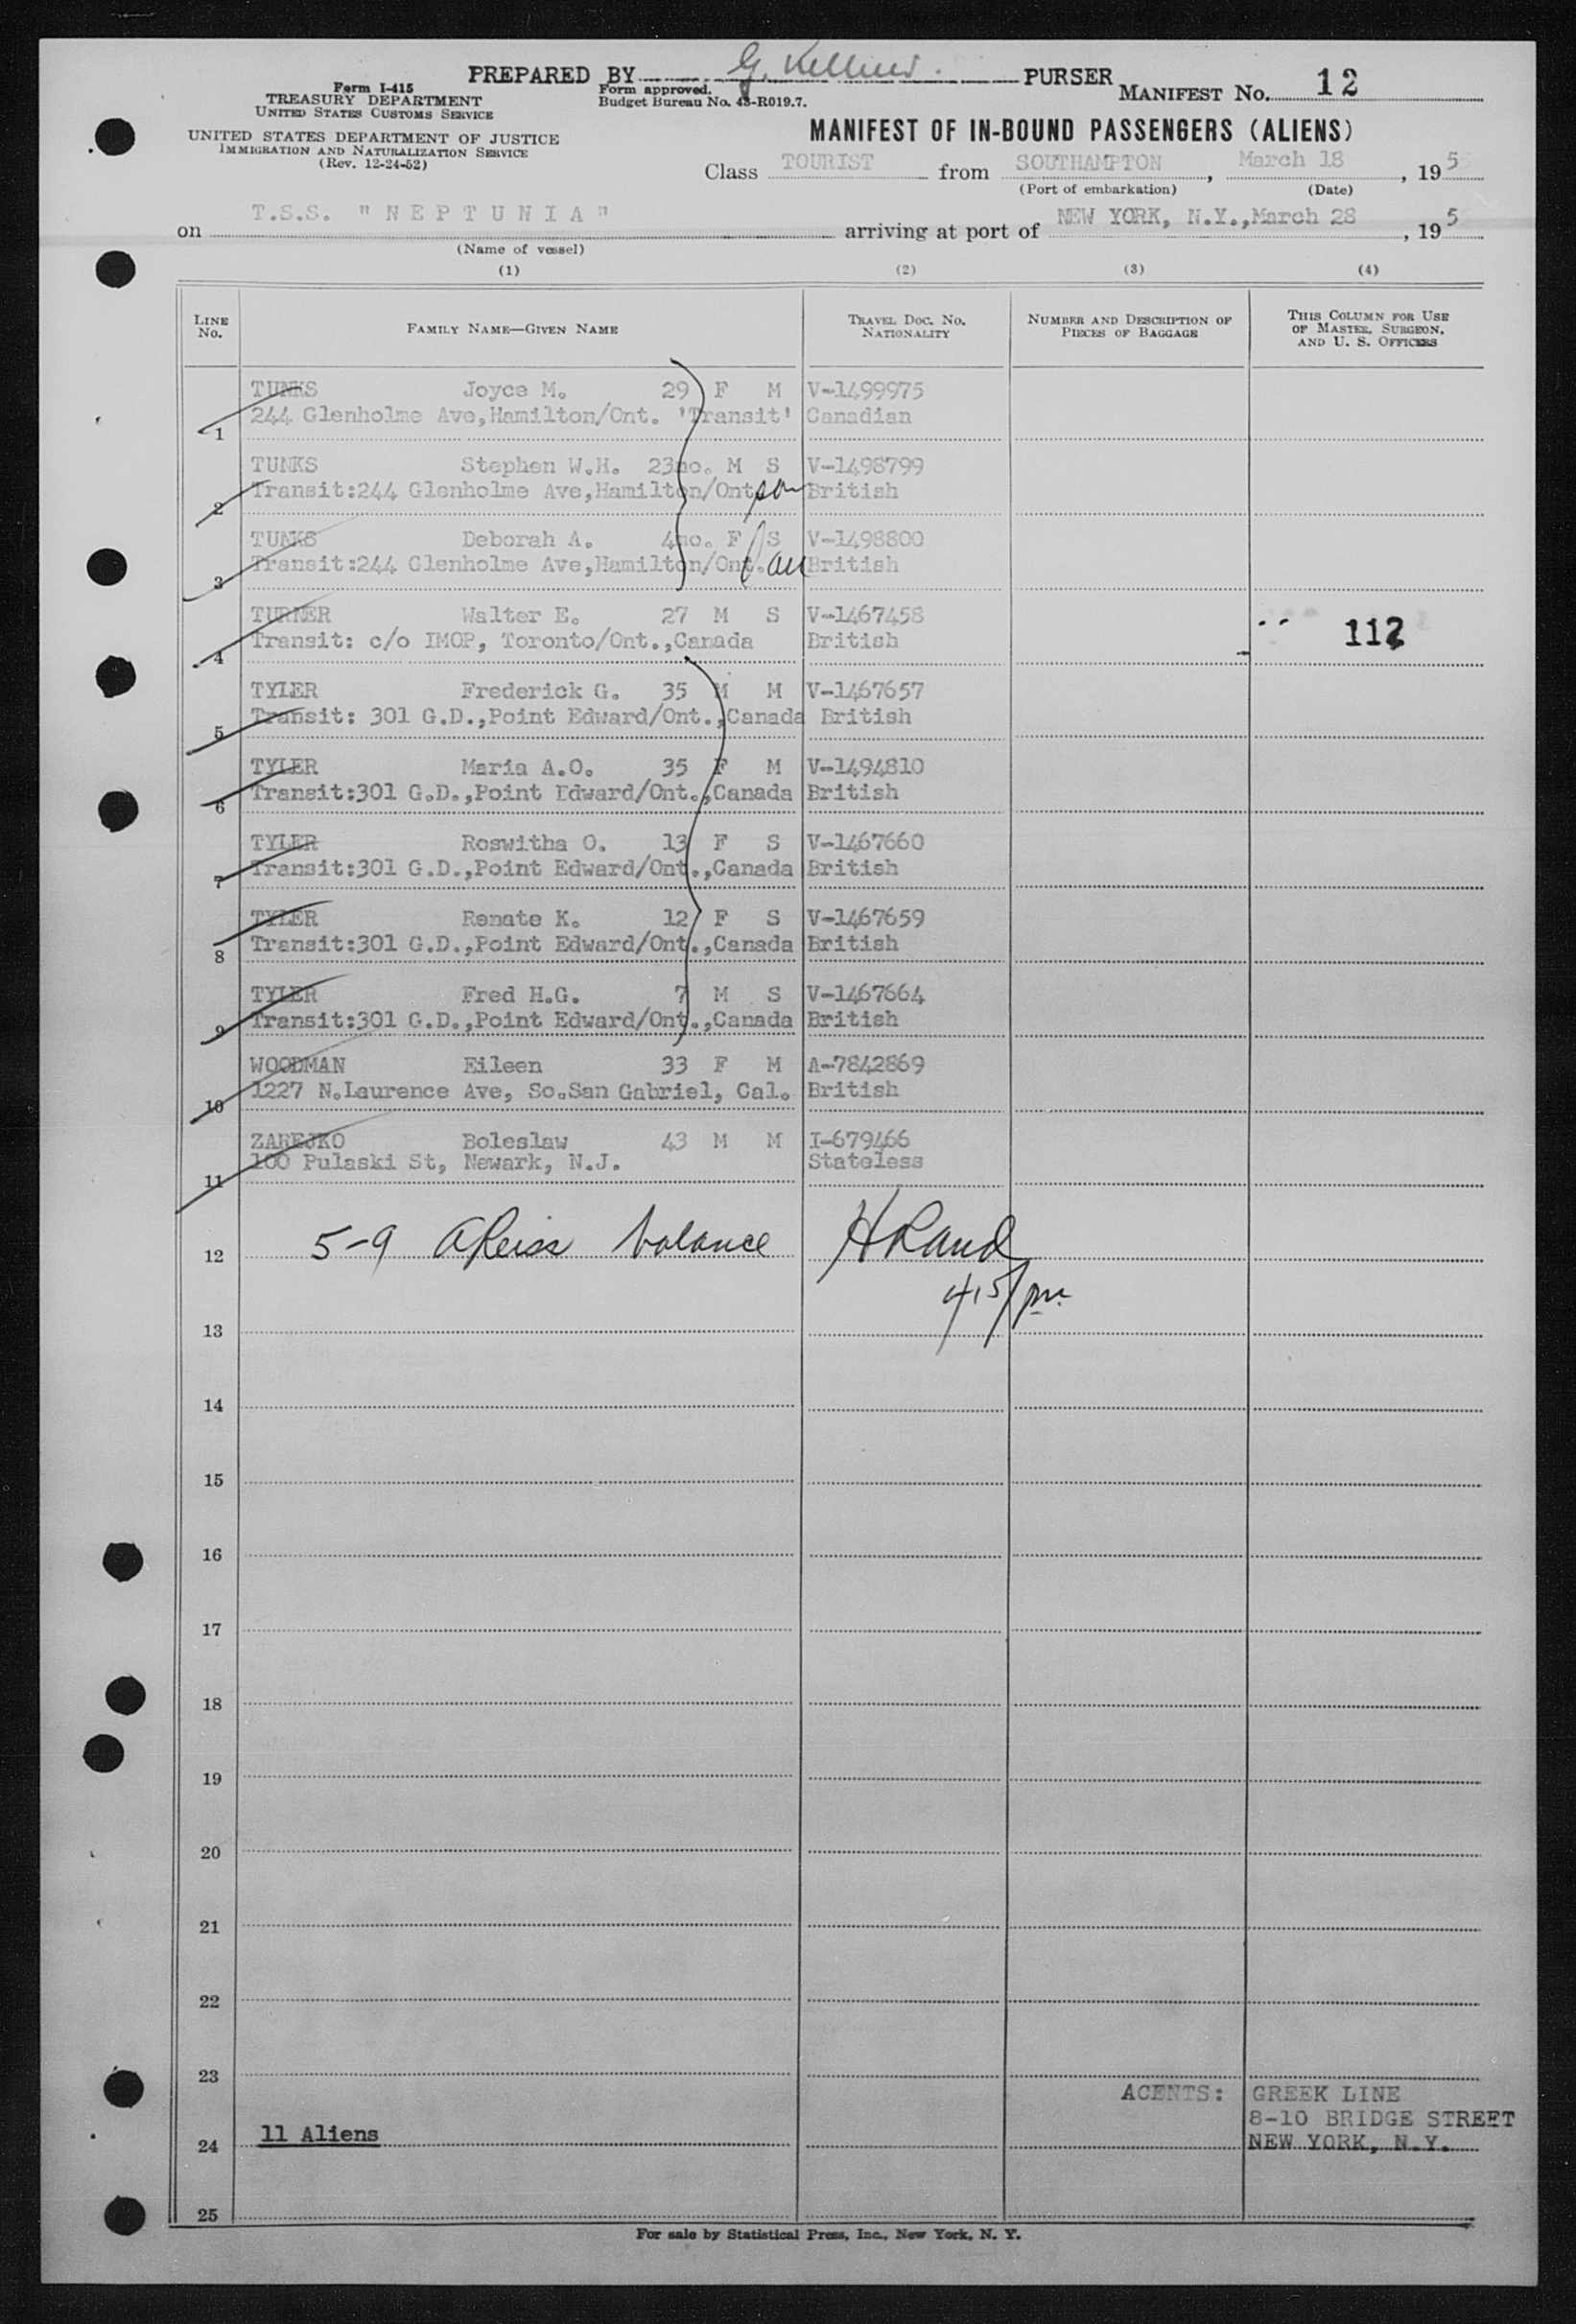 PREPARED BY G. PURSER
Form I-415
TREASURY DEPARTMENT
UNITED STATES CUSTOMS SERVICE
Form approved.
Budget Bureau No. 43-R019.7.
MANIFEST NO. 12
UNITED STATES DEPARTMENT OF JUSTICE
IMMIGRATION AND NATURALIZATION SERVICE
(Rev. 12-24-52)
MANIFEST OF IN-BOUND PASSENGERS (ALIENS)
Class TOURIST from SOUTHAMPTON, March 18, 195
(Port of embarkation) (Date)
on T.S.S. "NEPTUNIA" arriving at port of NEW YORK, N.Y., March 28, 195
(Name of vessel)
(1) (2) (3) (4)
LINE NO. FAMILY NAME—GIVEN NAME TRAVEL DOC. NO. NATIONALITY NUMBER AND DESCRIPTION OF PIECES OF BAGGAGE THIS COLUMN FOR USE OF MASTER, SURGEON, AND U. S. OFFICERS
TUNKS Joyce M. 29 F M V-1499975
1 244 Glenholme Ave,Hamilton/Ont. 'Transit' Canadian
TUNKS Stephen W.H. 23mo. M S V-1498799
2 Transit:244 Glenholme Ave,Hamilton/Ont son British
TUNKS Deborah A. 4mo. F S V-1498800
3 Transit:244 Glenholme Ave,Hamilton/Ont. dau British
TURNER Walter E. 27 M S V-1467458
4 Transit: c/o IMOP, Toronto/Ont.,Canada British 112
TYLER Frederick G. 35 M M V-1467657
5 Transit: 301 G.D.,Point Edward/Ont.,Canada British
TYLER Maria A.O. 35 F M V-1494810
6 Transit:301 G.D.,Point Edward/Ont.,Canada British
TYLER Roswitha O. 13 F S V-1467660
7 Transit:301 G.D.,Point Edward/Ont.,Canada British
TYLER Renate K. 12 F S V-1467659
8 Transit:301 G.D.,Point Edward/Ont.,Canada British
TYLER Fred H.G. 7 M S V-1467664
9 Transit:301 G.D.,Point Edward/Ont.,Canada British
WOODMAN Eileen 33 F M A-7842869
10 1227 N.Laurence Ave, So.San Gabriel, Cal. British
ZAREJKO Boleslaw 43 M M I-679466
11 100 Pulaski St, Newark, N.J. Stateless
12 5-9 AReiss balance HRand
415/pm
13
14
15
16
17
18
19
20
21
22
23
AGENTS: GREEK LINE
8-10 BRIDGE STREET
24 11 Aliens NEW YORK, N.Y.
25
For sale by Statistical Press, Inc., New York, N. Y.